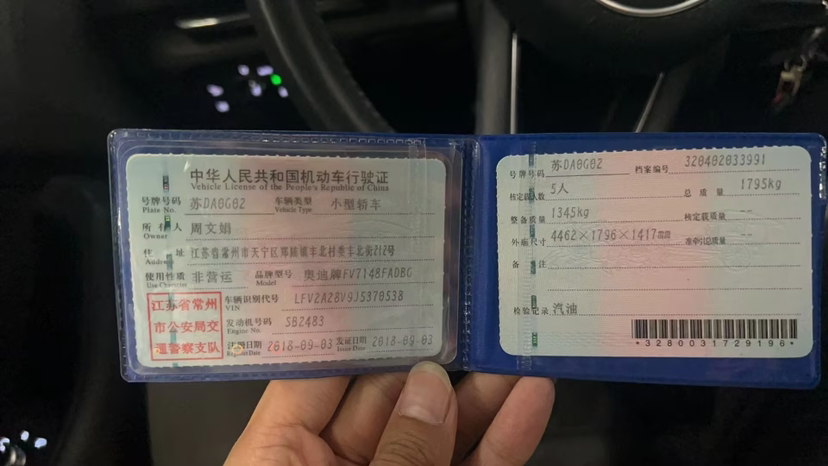 中华人民共和国机动车行驶证
Vehicle License of the People's Republic of China
号牌号码 苏DA0G02 车辆类型 小型轿车
Plate No. Vehicle Type
所有人 周文娟
Owner
住址 江苏省常州市天宁区郑陆镇丰北村委丰北街212号
Address
使用性质 非营运 品牌型号 奥迪牌FV7148FADBG
Use Character Model
江苏省常州
市公安局交
通警察支队
车辆识别代号 LFV2A28V9J5370538
VIN
发动机号码 SB2483
Engine No.
注册日期 2018-09-03 发证日期 2018-09-03
Register Date Issue Date
号牌号码 苏DA0G02 档案编号 320402033991
核定载人数 5人 总质量 1795kg
整备质量 1345kg 核定载质量 --
外廓尺寸 4462×1796×1417mm 准牵引总质量 --
备注
检验记录 汽油
*3280031729196*